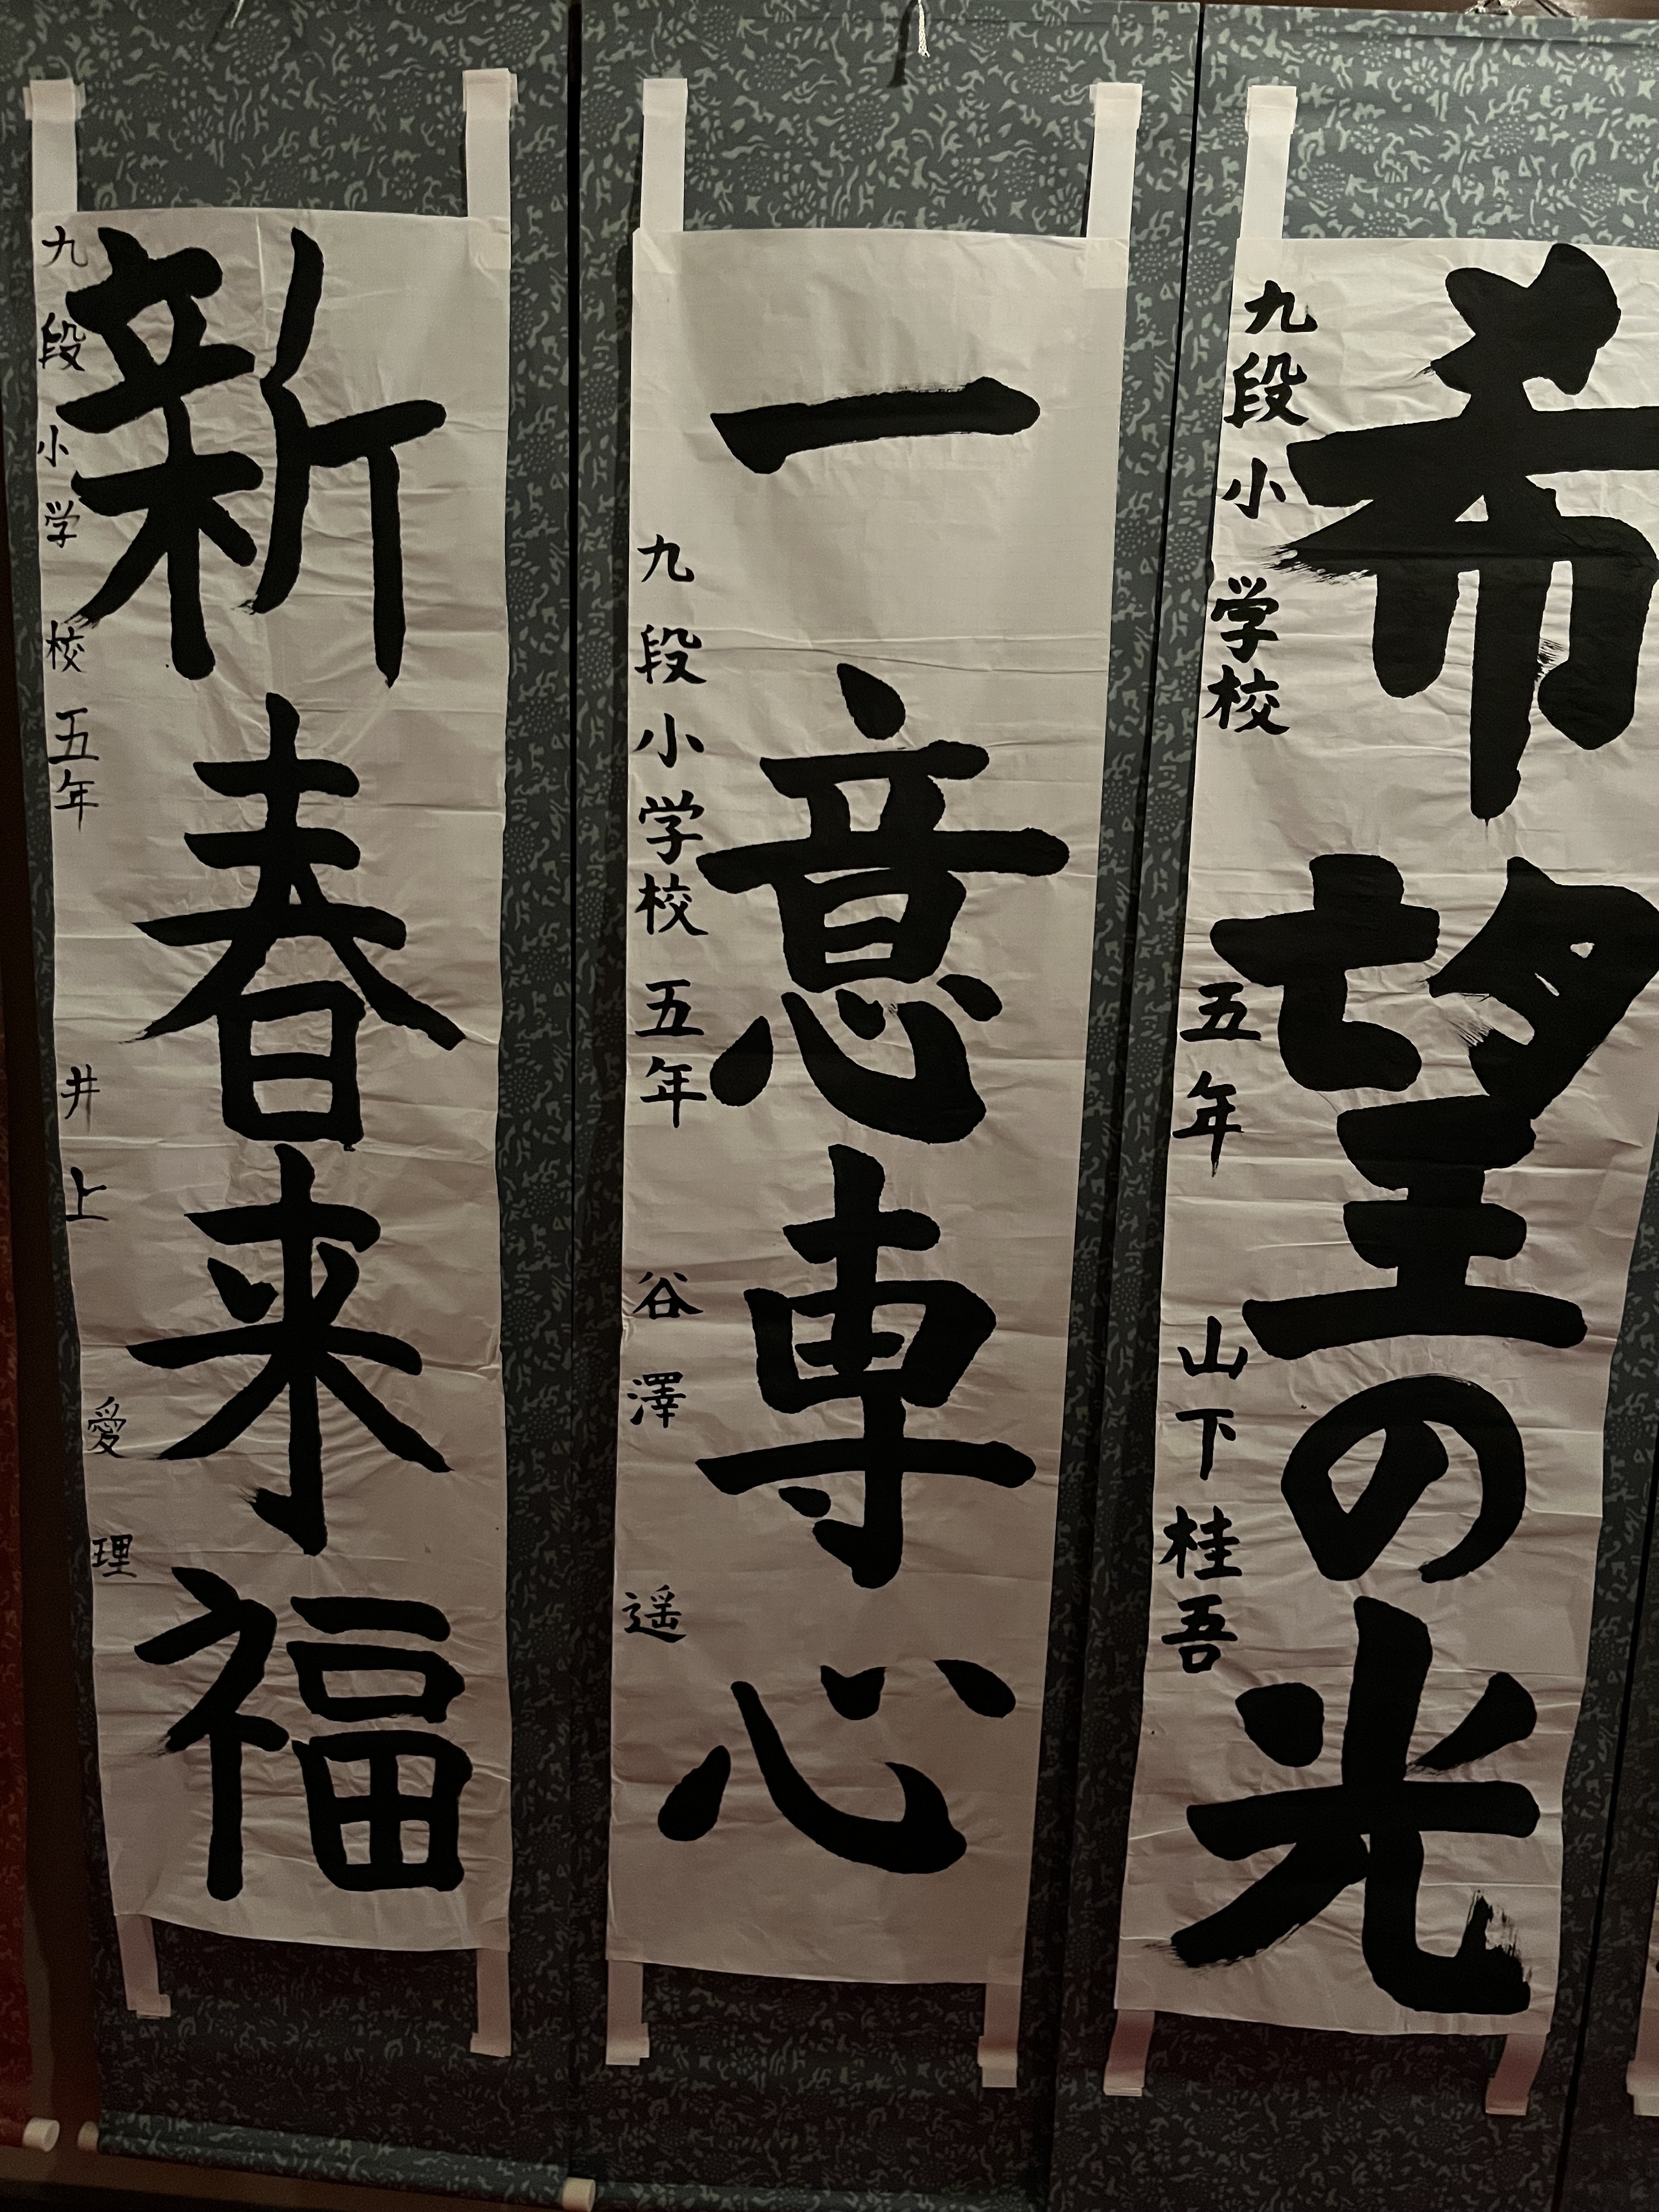 希望の光
九段小学校 五年 山下桂吾
一意専心
九段小学校 五年 谷澤 遥
新春来福
九段小学校 五年 井上 愛理